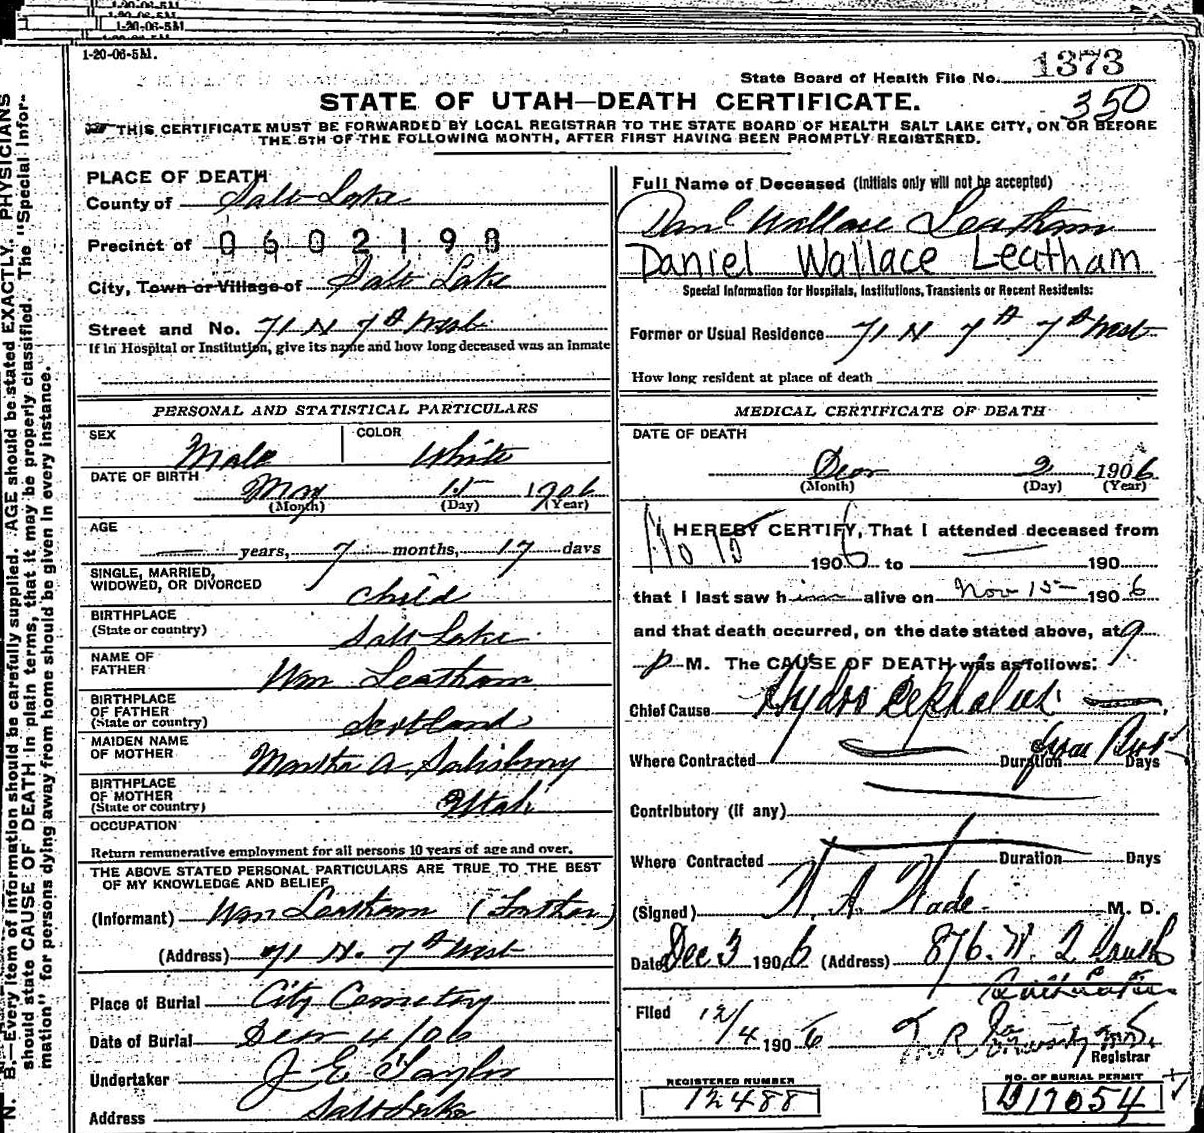 1-20-06-5M.
1-20-06-5M.
State Board of Health File No. 1373
350
STATE OF UTAH—DEATH CERTIFICATE.
THIS CERTIFICATE MUST BE FORWARDED BY LOCAL REGISTRAR TO THE STATE BOARD OF HEALTH SALT LAKE CITY, ON OR BEFORE
THE 5TH OF THE FOLLOWING MONTH, AFTER FIRST HAVING BEEN PROMPTLY REGISTERED.
N. B.—Every item of information should be carefully supplied. AGE should be stated EXACTLY. PHYSICIANS
should state CAUSE OF DEATH in plain terms, that it may be properly classified. The "Special Infor-
mation" for persons dying away from home should be given in every instance.
PLACE OF DEATH
County of Salt Lake
Precinct of 0602198
City, Town or Village of Salt Lake
Street and No. 71 N 7th West
If in Hospital or Institution, give its name and how long deceased was an inmate
PERSONAL AND STATISTICAL PARTICULARS
SEX Male COLOR White
DATE OF BIRTH May 15 1906
(Month) (Day) (Year)
AGE — years, 7 months, 17 days
SINGLE, MARRIED,
WIDOWED, OR DIVORCED Child
BIRTHPLACE
(State or country) Salt Lake
NAME OF
FATHER Wm Leatham
BIRTHPLACE
OF FATHER
(State or country) Scotland
MAIDEN NAME
OF MOTHER Martha A Salisbury
BIRTHPLACE
OF MOTHER
(State or country) Utah
OCCUPATION
Return remunerative employment for all persons 10 years of age and over.
THE ABOVE STATED PERSONAL PARTICULARS ARE TRUE TO THE BEST
OF MY KNOWLEDGE AND BELIEF
(Informant) Wm Leatham (Father)
(Address) 71 N. 7th West
Place of Burial City Cemetery
Date of Burial Dec 4/06
Undertaker J E Taylor
Address Salt Lake
Full Name of Deceased (Initials only will not be accepted)
Danl Wallace Leatham
Daniel Wallace Leatham
Special Information for Hospitals, Institutions, Transients or Recent Residents:
Former or Usual Residence 71 N 7th 7th West
How long resident at place of death
MEDICAL CERTIFICATE OF DEATH
DATE OF DEATH
Dec 2 1906
(Month) (Day) (Year)
I HEREBY CERTIFY, That I attended deceased from
190 6 to — 190
that I last saw him alive on Nov 15 — 190 6
and that death occurred, on the date stated above, at 9
p M. The CAUSE OF DEATH was as follows:
Chief Cause Hydrocephalus
Where Contracted Duration from Birth Days
Contributory (if any)
Where Contracted Duration Days
(Signed) W. A. Wade M. D.
Date Dec 3 190 6 (Address) 876. W. 2 South
Filed 12/4 190 6
Registrar
REGISTERED NUMBER
12488
NO. OF BURIAL PERMIT
17054